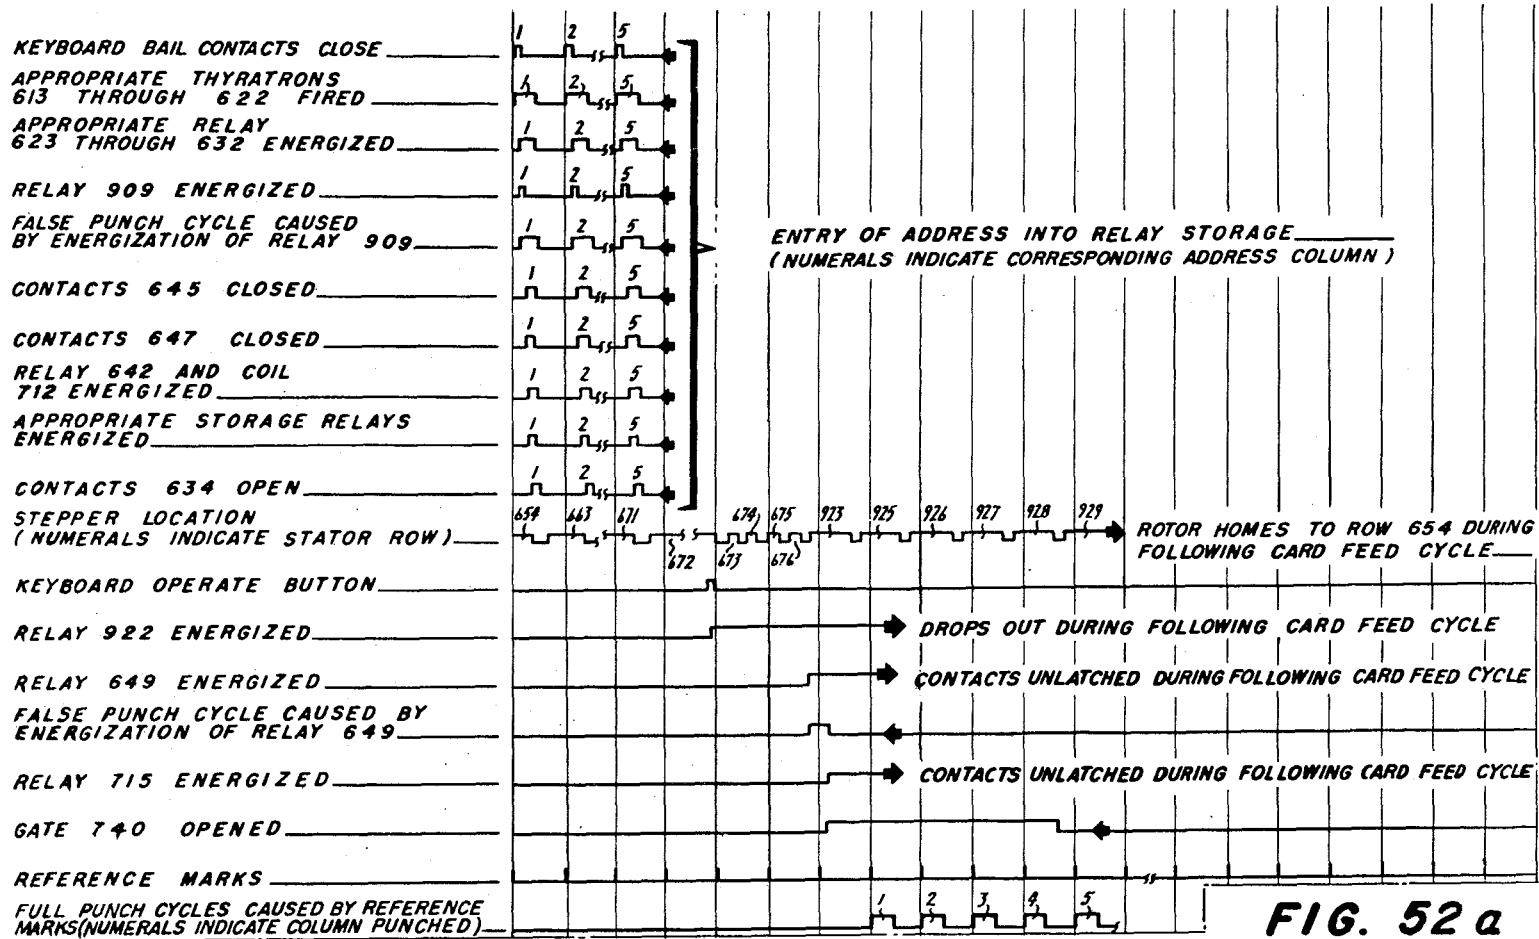 KEYBOARD BAIL CONTACTS CLOSE
1 2 5
APPROPRIATE THYRATRONS
613 THROUGH 622 FIRED
1 2 5
APPROPRIATE RELAY
623 THROUGH 632 ENERGIZED
1 2 5
RELAY 909 ENERGIZED
1 2 5
FALSE PUNCH CYCLE CAUSED
BY ENERGIZATION OF RELAY 909
1 2 5
ENTRY OF ADDRESS INTO RELAY STORAGE
(NUMERALS INDICATE CORRESPONDING ADDRESS COLUMN)
CONTACTS 645 CLOSED
1 2 5
CONTACTS 647 CLOSED
1 2 5
RELAY 642 AND COIL
712 ENERGIZED
1 2 5
APPROPRIATE STORAGE RELAYS
ENERGIZED
1 2 5
CONTACTS 634 OPEN
1 2 5
STEPPER LOCATION
(NUMERALS INDICATE STATOR ROW)
654 663 671 674 675 923 925 926 927 928 929
672 673 676
ROTOR HOMES TO ROW 654 DURING
FOLLOWING CARD FEED CYCLE
KEYBOARD OPERATE BUTTON
RELAY 922 ENERGIZED
DROPS OUT DURING FOLLOWING CARD FEED CYCLE
RELAY 649 ENERGIZED
CONTACTS UNLATCHED DURING FOLLOWING CARD FEED CYCLE
FALSE PUNCH CYCLE CAUSED BY
ENERGIZATION OF RELAY 649
RELAY 715 ENERGIZED
CONTACTS UNLATCHED DURING FOLLOWING CARD FEED CYCLE
GATE 740 OPENED
REFERENCE MARKS
FULL PUNCH CYCLES CAUSED BY REFERENCE
MARKS(NUMERALS INDICATE COLUMN PUNCHED)
1 2 3 4 5
FIG. 52a